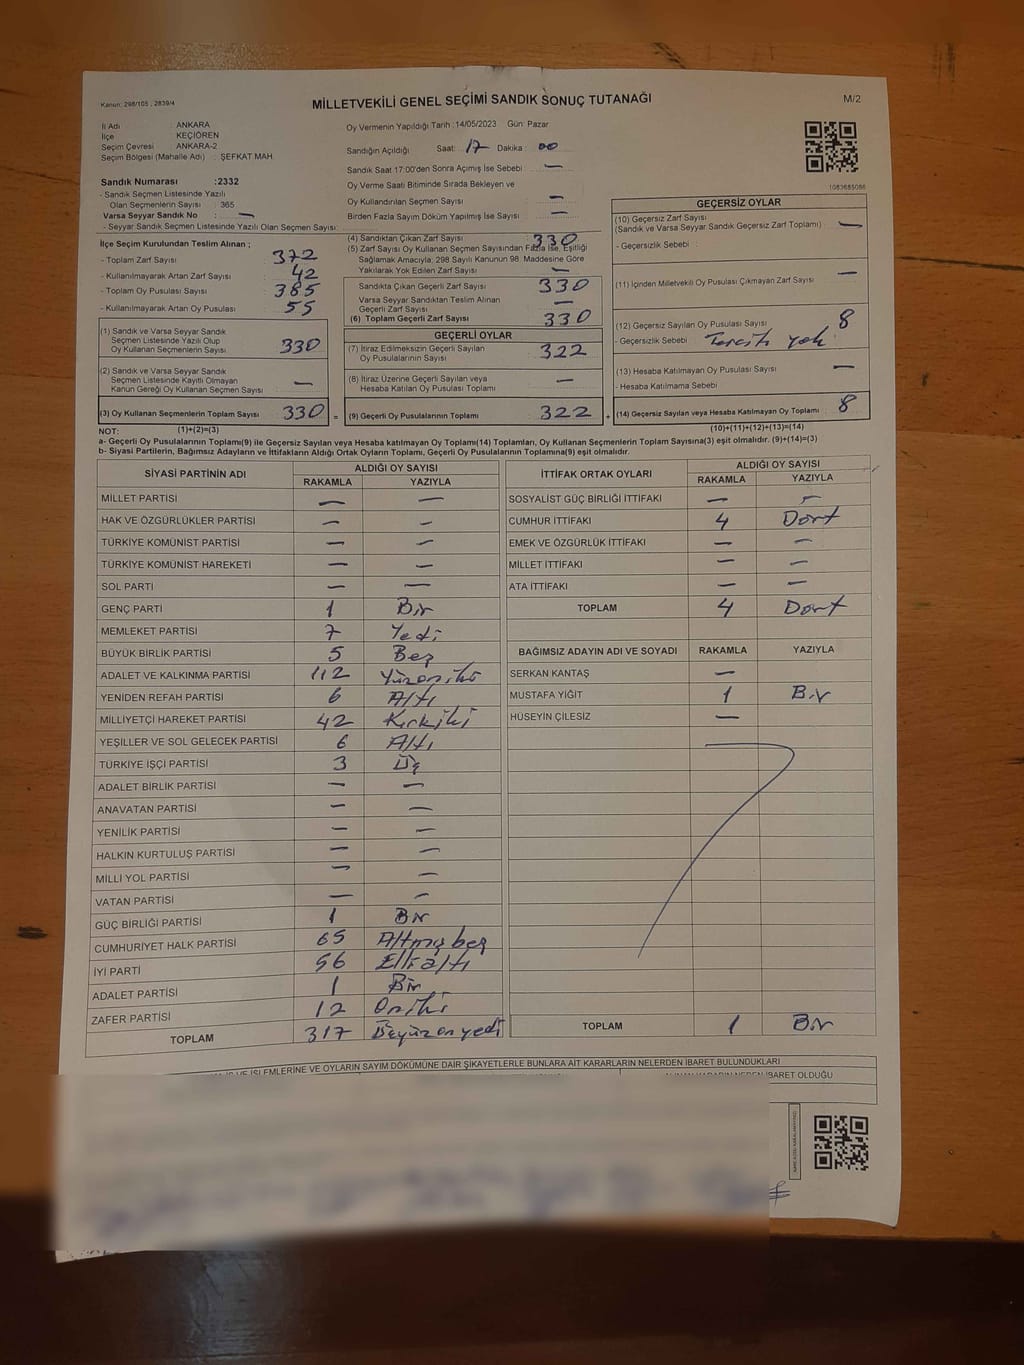 Kanun: 298/105 , 2839/4
MİLLETVEKİLİ GENEL SEÇİMİ SANDIK SONUÇ TUTANAĞI
M/2
İl Adı : ANKARA
İlçe : KEÇİÖREN
Seçim Çevresi : ANKARA-2
Seçim Bölgesi (Mahalle Adı) : ŞEFKAT MAH.
Oy Vermenin Yapıldığı Tarih :14/05/2023 Gün: Pazar
Sandığın Açıldığı Saat: 17 Dakika : 00
Sandık Saat 17:00'den Sonra Açımış İse Sebebi : —
Oy Verme Saati Bitiminde Sırada Bekleyen ve
Oy Kullandırılan Seçmen Sayısı : —
Birden Fazla Sayım Döküm Yapılmış İse Sayısı : —
1083685086
Sandık Numarası :2332
- Sandık Seçmen Listesinde Yazılı
Olan Seçmenlerin Sayısı : 365
Varsa Seyyar Sandık No : —
- Seyyar Sandık Seçmen Listesinde Yazılı Olan Seçmen Sayısı :
İlçe Seçim Kurulundan Teslim Alınan ;
- Toplam Zarf Sayısı : 372
- Kullanılmayarak Artan Zarf Sayısı : 42
- Toplam Oy Pusulası Sayısı : 385
- Kullanılmayarak Artan Oy Pusulası : 55
(1) Sandık ve Varsa Seyyar Sandık
Seçmen Listesinde Yazılı Olup
Oy Kullanan Seçmenlerin Sayısı 330
(2) Sandık ve Varsa Seyyar Sandık
Seçmen Listesinde Kayıtlı Olmayan
Kanun Gereği Oy Kullanan Seçmen Sayısı —
(3) Oy Kullanan Seçmenlerin Toplam Sayısı 330 =
(4) Sandıktan Çıkan Zarf Sayısı : 330
(5) Zarf Sayısı Oy Kullanan Seçmen Sayısından Fazla İse, Eşitliği
Sağlamak Amacıyla; 298 Sayılı Kanunun 98. Maddesine Göre
Yakılarak Yok Edilen Zarf Sayısı : —
Sandıkta Çıkan Geçerli Zarf Sayısı : 330
Varsa Seyyar Sandıktan Teslim Alınan
Geçerli Zarf Sayısı : —
(6) Toplam Geçerli Zarf Sayısı : 330
GEÇERLİ OYLAR
(7) İtiraz Edilmeksizin Geçerli Sayılan
Oy Pusulalarının Sayısı : 322
(8) İtiraz Üzerine Geçerli Sayılan veya
Hesaba Katılan Oy Pusulası Toplamı : —
(9) Geçerli Oy Pusulalarının Toplamı : 322 +
GEÇERSİZ OYLAR
(10) Geçersiz Zarf Sayısı :
(Sandık ve Varsa Seyyar Sandık Geçersiz Zarf Toplamı) —
- Geçersizlik Sebebi :
(11) İçinden Milletvekili Oy Pusulası Çıkmayan Zarf Sayısı : —
(12) Geçersiz Sayılan Oy Pusulası Sayısı : 8
- Geçersizlik Sebebi : Tercih yok
(13) Hesaba Katılmayan Oy Pusulası Sayısı : —
- Hesaba Katılmama Sebebi :
(14) Geçersiz Sayılan veya Hesaba Katılmayan Oy Toplamı : 8
NOT: (1)+(2)=(3) (10)+(11)+(12)+(13)=(14)
a- Geçerli Oy Pusulalarının Toplamı(9) ile Geçersiz Sayılan veya Hesaba katılmayan Oy Toplamı(14) Toplamları, Oy Kullanan Seçmenlerin Toplam Sayısına(3) eşit olmalıdır. (9)+(14)=(3)
b- Siyasi Partilerin, Bağımsız Adayların ve İttifakların Aldığı Ortak Oyların Toplamı, Geçerli Oy Pusulalarının Toplamına(9) eşit olmalıdır.
SİYASİ PARTİNİN ADI ALDIĞI OY SAYISI
RAKAMLA YAZIYLA
MİLLET PARTİSİ — —
HAK VE ÖZGÜRLÜKLER PARTİSİ — —
TÜRKİYE KOMÜNİST PARTİSİ — —
TÜRKİYE KOMÜNİST HAREKETİ — —
SOL PARTİ — —
GENÇ PARTİ 1 Bir
MEMLEKET PARTİSİ 7 Yedi
BÜYÜK BİRLİK PARTİSİ 5 Beş
ADALET VE KALKINMA PARTİSİ 112 Yüzoniki
YENİDEN REFAH PARTİSİ 6 Altı
MİLLİYETÇİ HAREKET PARTİSİ 42 Kırkiki
YEŞİLLER VE SOL GELECEK PARTİSİ 6 Altı
TÜRKİYE İŞÇİ PARTİSİ 3 Üç
ADALET BİRLİK PARTİSİ — —
ANAVATAN PARTİSİ — —
YENİLİK PARTİSİ — —
HALKIN KURTULUŞ PARTİSİ — —
MİLLİ YOL PARTİSİ — —
VATAN PARTİSİ — —
GÜÇ BİRLİĞİ PARTİSİ 1 Bir
CUMHURİYET HALK PARTİSİ 65 Altmış beş
İYİ PARTİ 56 Elli altı
ADALET PARTİSİ 1 Bir
ZAFER PARTİSİ 12 Oniki
TOPLAM 317 Üçyüzonyedi
İTTİFAK ORTAK OYLARI ALDIĞI OY SAYISI
RAKAMLA YAZIYLA
SOSYALİST GÜÇ BİRLİĞİ İTTİFAKI — —
CUMHUR İTTİFAKI 4 Dört
EMEK VE ÖZGÜRLÜK İTTİFAKI — —
MİLLET İTTİFAKI — —
ATA İTTİFAKI — —
TOPLAM 4 Dört
BAĞIMSIZ ADAYIN ADI VE SOYADI RAKAMLA YAZIYLA
SERKAN KANTAŞ —
MUSTAFA YİĞİT 1 Bir
HÜSEYİN ÇİLESİZ —
TOPLAM 1 Bir
İŞLEMLERİNE VE OYLARIN SAYIM DÖKÜMÜNE DAİR ŞİKAYETLERLE BUNLARA AİT KARARLARIN NELERDEN İBARET BULUNDUKLARI
KARARIN NEDEN İBARET OLDUĞU